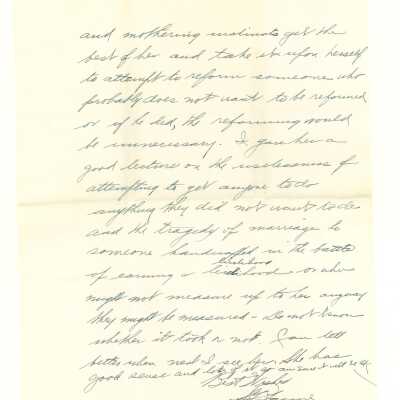 and mothering instincts get the
best of her and take it upon herself
to attempt to reform someone who
probably does not want to be reformed
or if he did, the reforming would
be unnecessary. I gave her a
good lecture on the uselessness of
attempting to get anyone to do
anything they did not want to do
and the tragedy of marriage to
someone handicapped in the battle
livelihood
of earning a or who
might not measure up to her anyway
they might be measured - Do not know
whether it took or not. I can tell
better when next I see her. She has
good sense and lots of it so am sure it will
Best Wishes